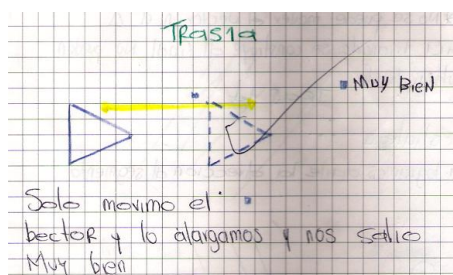 Trasla
MUY BIEN
Solo movimo el
bector y lo alargamos y nos salio
Muy bien